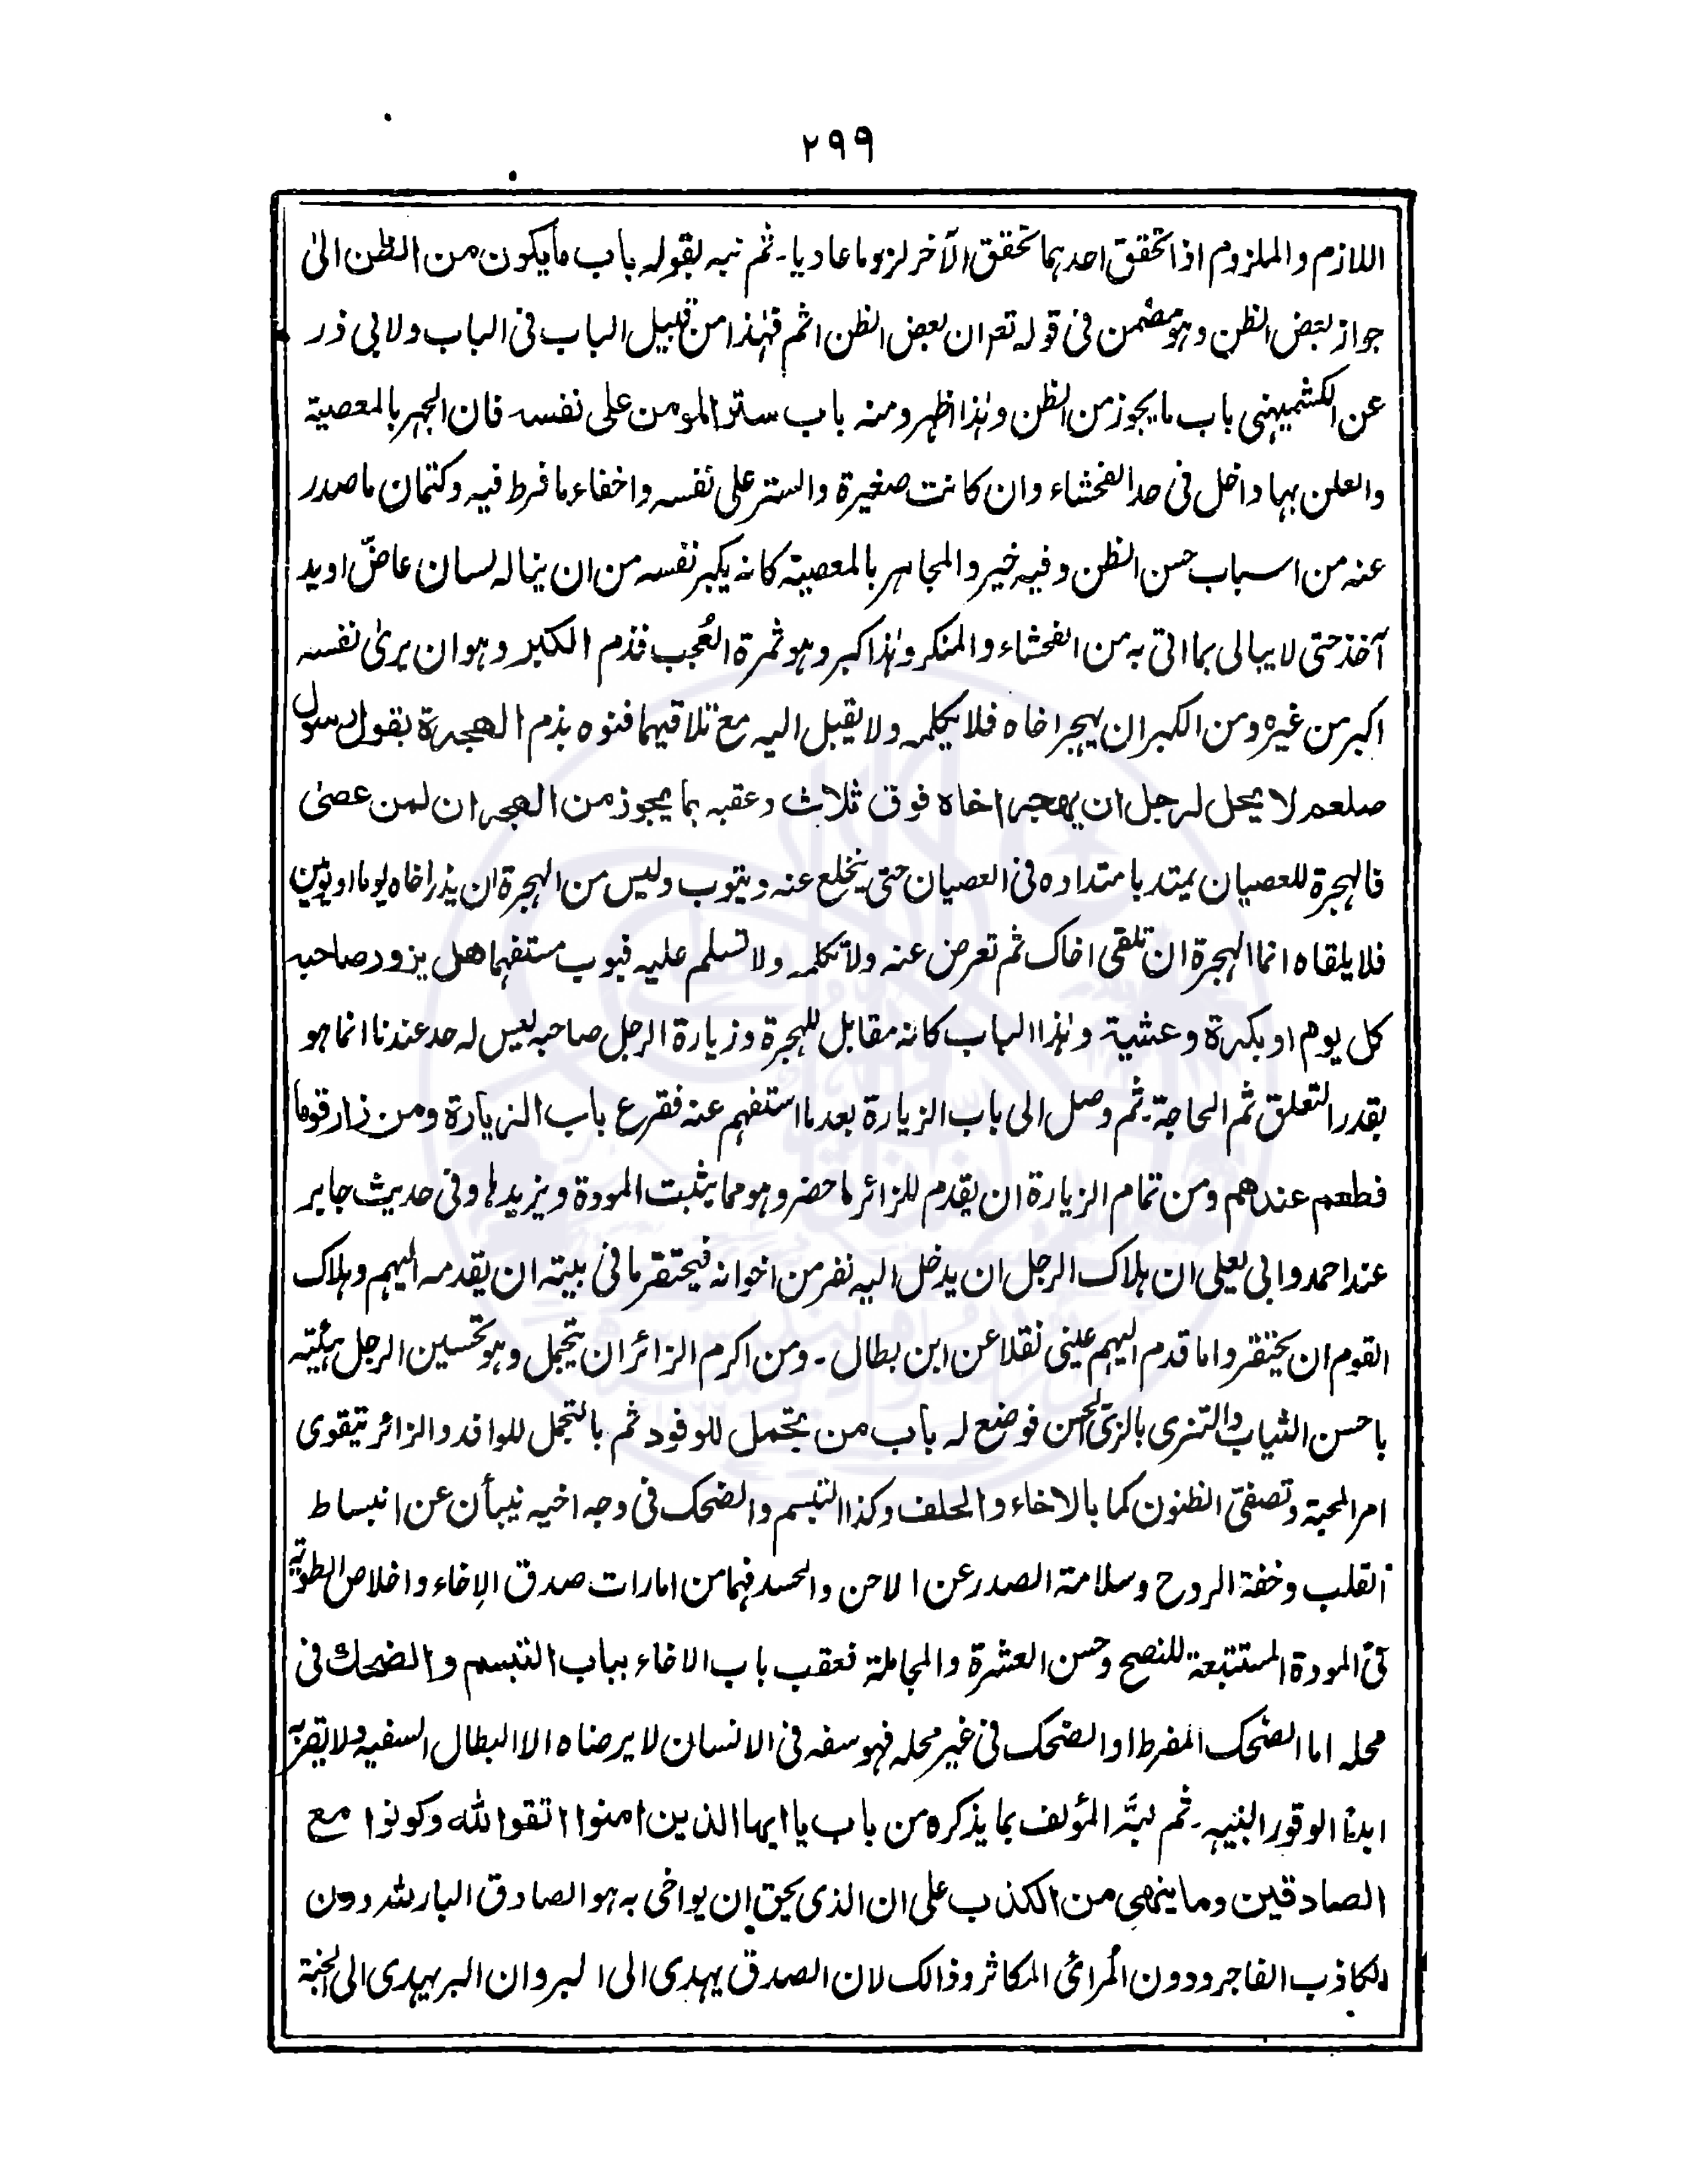 ٢٩٩
اللازم والملزوم اذا تحقق احدهما تحقق الآخر لزوما عاديا۔ ثم نبه بقوله باب ما يكون من الظن الى
جواز بعض الظن وهو مضمن فى قوله تعم ان بعض الظن اثم فهذا من قبيل الباب فى الباب ولابى ذر
عن الكشميهنى باب ما يجوز من الظن وهذا اظهر ومنه باب ستر المومن على نفسه فان الجهر بالمعصية
والعلن بها داخل فى حد الفحشاء وان كانت صغيرة والستر على نفسه واخفاء ما فرط فيه وكتمان ما صدر
عنه من اسباب حسن الظن وفيه خير والمجاهر بالمعصية كانه يكبر نفسه من ان يناله لسان عاضّ او يد
آخذ حتى لا يبالى بما اتى به من الفحشاء والمنكر وهذا كبر وهو ثمرة العُجب فذم الكبر وهو ان يرى نفسه
اكبر من غيره ومن الكبر ان يهجر اخاه فلا يكلمه ولا يقبل اليه مع تلاقيهما فنوه بذم الهجرة بقول رسول
صلعم لا يحل لرجل ان يهجر اخاه فوق ثلاث وعقبه بما يجوز من الهجران لمن عصى
فالهجرة للعصيان يمتد بامتداده فى العصيان حتى ينخلع عنه ويتوب وليس من الهجرة ان يذر اخاه يوما او يومين
فلا يلقاه انما الهجرة ان تلقى اخاك ثم تعرض عنه ولا تكلمه ولا تسلم عليه فبوب مستفهما هل يزور صاحبه
كل يوم او بكرة وعشية وهذا الباب كانه مقابل للهجرة وزيارة الرجل صاحبه ليس له حد عندنا انما هو
بقدر التعلق ثم الحاجة۔ ثم وصل الى باب الزيارة بعد ما استفهم عنه فقرع باب الزيارة ومن زار قوما
فطعم عندهم ومن تمام الزيارة ان يقدم للزائر ما حضر وهو مما يثبت المودة ويزيدها وفى حديث جابر
عند احمد وابى يعلى ان هلاك الرجل ان يدخل اليه نفر من اخوانه فيحتقر ما فى بيته ان يقدمه اليهم وهلاك
القوم ان يحتقروا ما قدم اليهم عينى نقلا عن ابن بطال۔ ومن اكرم الزائر ان يتجمل وهو تحسين الرجل هيئته
باحسن الثياب والتزى بالزىّ الحسن فوضع له باب من تجمل للوفود ثم بالتجمل للوافد والزائر يتقوى
امر المحبة وتصفىّ الظنون كما بالاخاء والحلف وكذا التبسم والضحك فى وجه اخيه نيبأن عن انبساط
القلب وخفة الروح وسلامة الصدر عن الاحن والحسد فهما من امارات صدق الإخاء واخلاص الطوية
فى المودة المستتبعة للنصح وحسن العشرة والمجاملة فعقب باب الاخاء بباب التبسم والضحك فى
محله اما الضحك المفرط او الضحك فى غير محله فهو سفه فى الانسان لا يرضاه الا البطال السفيه ولا يقربه
ابدًا الوقور النبيه۔ ثم نبَّه المؤلف بما يذكره من باب يا ايها الذين امنوا اتقوا الله وكونوا مع
الصادقين وما ينهى من الكذب على ان الذى يحق ان يواخى به هو الصادق البار لله دون
الكاذب الفاجر ودون المرائى المكاثر وذالك لان الصدق يهدى الى البر وان البر يهدى الى الجنة